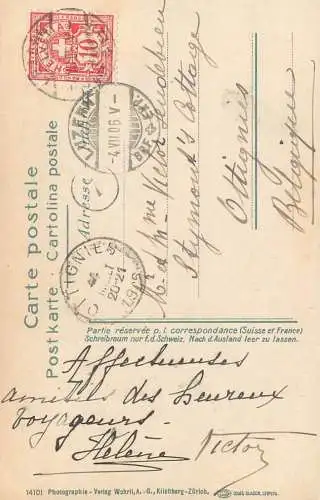 Carte postale
Postkarte · Cartolina postale
Adresse
HELVETIA
10
-4.VII.06.V-
BRF. EXP.
OTTIGNIES
20-21
1906
M. et Mme Victor
Cottage
Ottignies
Belgique
Partie réservée p. l. correspondance (Suisse et France)
Schreibraum nur f. d. Schweiz. Nach d. Ausland leer zu lassen.
Affectueuses
amitiés des heureux
voyageurs.
Hélène Victor
14101 Photographie - Verlag Wehrli, A.-G., Kilchberg-Zürich.